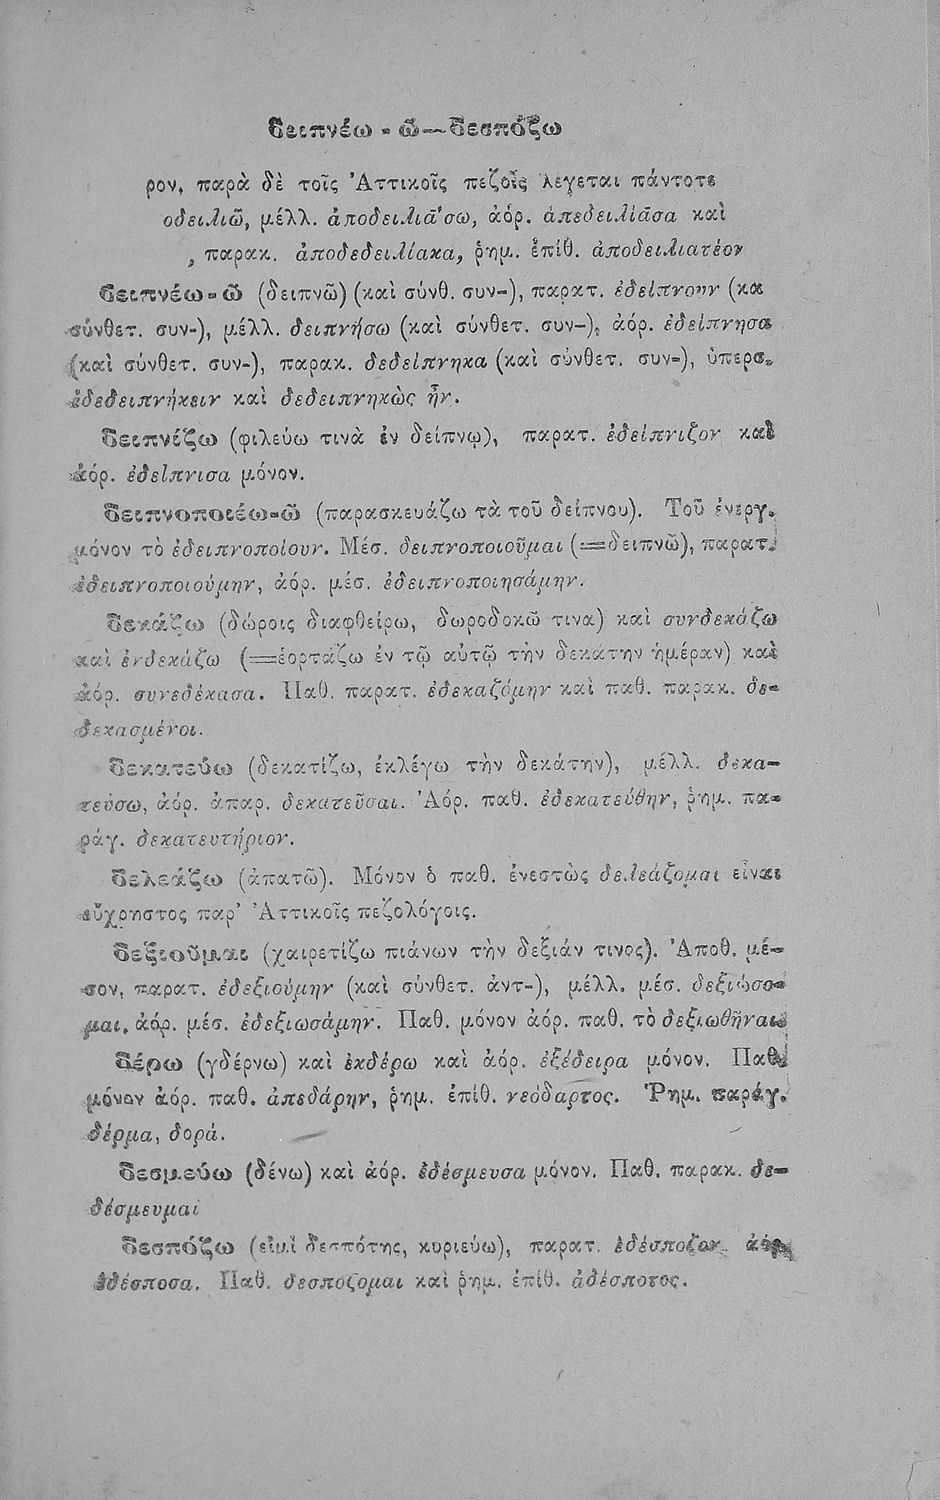 δειπνέω - ῶ—δεσπόζω
ρον, παρὰ δὲ τοῖς Ἀττικοῖς πεζοῖς λέγεται πάντοτε
οδειλιῶ, μέλλ. ἀποδειλιᾱ́σω, ἀόρ. ἀπεδειλίᾱσα καὶ
, παρακ. ἀποδεδειλίακα, ῥημ. ἐπίθ. ἀποδειλιατέον
δειπνέω-ῶ (δειπνῶ) (καὶ σύνθ. συν-), παρατ. ἐδείπνουν (κα
σύνθετ. συν-), μέλλ. δειπνήσω (καὶ σύνθετ. συν-), ἀόρ. ἐδείπνησα
(καὶ σύνθετ. συν-), παρακ. δεδείπνηκα (καὶ σύνθετ. συν-), ὑπερσ.
ἐδεδειπνήκειν καὶ δεδειπνηκὼς ἦν.
δειπνίζω (φιλεύω τινὰ ἐν δείπνῳ), παρατ. ἐδείπνιζον καὶ
ἀόρ. ἐδείπνισα μόνον.
δειπνοποιέω-ῶ (παρασκευάζω τὰ τοῦ δείπνου). Τοῦ ἐνεργ.
μόνον τὸ ἐδειπνοποίουν. Μέσ. δειπνοποιοῦμαι (=δειπνῶ), παρατ.
ἐδειπνοποιούμην, ἀόρ. μέσ. ἐδειπνοποιησάμην.
δεκάζω (δώροις διαφθείρω, δωροδοκῶ τινα) καὶ συνδεκάζω
καὶ ἐνδεκάζω (=ἑορτάζω ἐν τῷ αὐτῷ τὴν δεκάτην ἡμέραν) καὶ
ἀόρ. συνεδέκασα. Παθ. παρατ. ἐδεκαζόμην καὶ παθ. παρακ. δε-
δεκασμένοι.
δεκατεύω (δεκατίζω, ἐκλέγω τὴν δεκάτην), μέλλ. δεκα-
τεύσω, ἀόρ. ἀπαρ. δεκατεῦσαι. Ἀόρ. παθ. ἐδεκατεύθην, ῥημ. πα-
ράγ. δεκατευτήριον.
δελεάζω (ἀπατῶ). Μόνον ὁ παθ. ἐνεστὼς δελεάζομαι εἶναι
εὔχρηστος παρ' Ἀττικοῖς πεζολόγοις.
δεξιοῦμαι (χαιρετίζω πιάνων τὴν δεξιάν τινος). Ἀποθ. μέ-
σον, παρατ. ἐδεξιούμην (καὶ σύνθετ. ἀντ-), μέλλ. μέσ. δεξιώσο-
μαι, ἀόρ. μέσ. ἐδεξιωσάμην. Παθ. μόνον ἀόρ. παθ. τὸ δεξιωθῆναι.
δέρω (γδέρνω) καὶ ἐκδέρω καὶ ἀόρ. ἐξέδειρα μόνον. Παθ.
μόνον ἀόρ. παθ. ἀπεδάρην, ῥημ. ἐπίθ. νεόδαρτος. Ῥημ. παράγ.
δέρμα, δορά.
δεσμεύω (δένω) καὶ ἀόρ. ἐδέσμευσα μόνον. Παθ. παρακ. δε-
δέσμευμαι
δεσπόζω (εἰμὶ δεσπότης, κυριεύω), παρατ. ἐδέσποζον, ἀόρ.
ἐδέσποσα. Παθ. δεσπόζομαι καὶ ῥημ. ἐπίθ. ἀδέσποτος.